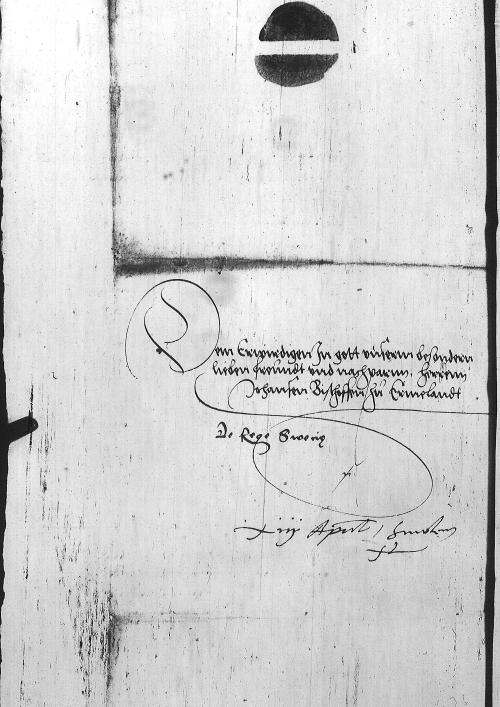 Dem Erwirdigen In gott vnserm besondern
lieben freundt vnd nachparnn, herrenn
Johansen Bischoffen zu Ermelandt
De Rege Swecig
xiij April